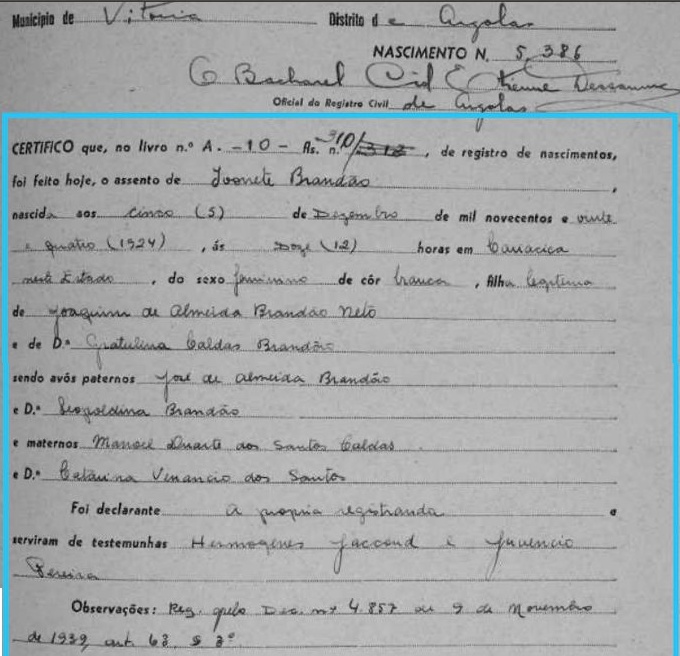 Município de Vitoria Distrito de Argolas
NASCIMENTO N. 5.386
O Bacharel Cid Etienne Dessaune
Oficial do Registro Civil de Argolas
CERTIFICO que, no livro n.º A. -10- Fls. n.º 310/312, de registro de nascimentos,
foi feito hoje, o assento de Ivonete Brandão,
nascida aos cinco (5) de Dezembro de mil novecentos e vinte
e quatro (1924), ás Doze (12) horas em Cariacica
neste Estado, do sexo feminino de côr branca, filha legitima
de Joaquim de Almeida Brandão Neto
e de D.ª Gratulina Caldas Brandão
sendo avós paternos José de Almeida Brandão
e D.ª Leopoldina Brandão
e maternos Manoel Duarte dos Santos Caldas.
e D.ª Catarina Venancio dos Santos
Foi declarante a propria registranda e
serviram de testemunhas Hermogenes e Juvencio
Pereira
Observações: Reg. pelo Dec. nº 4.857 de 9 de Novembro
de 1939, art. 63, § 2º